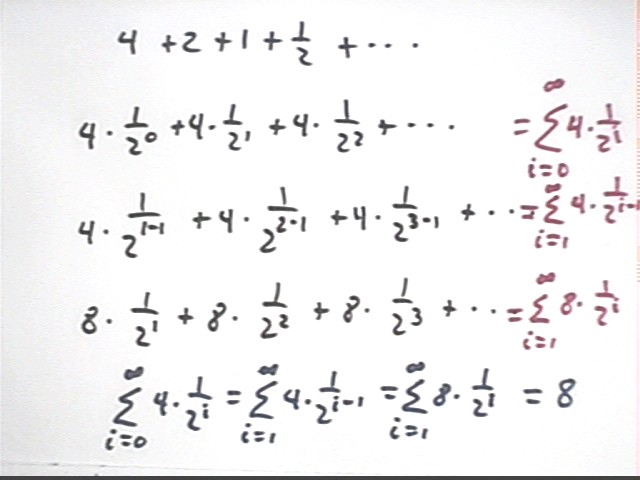 4 + 2 + 1 + 1/2 + ···
4 · 1/2⁰ + 4 · 1/2¹ + 4 · 1/2² + ··· = ∑_{i=0}^{∞} 4 · 1/2ⁱ
4 · 1/2¹⁻¹ + 4 · 1/2²⁻¹ + 4 · 1/2³⁻¹ + ·· = ∑_{i=1}^{∞} 4 · 1/2ⁱ⁻¹
8 · 1/2¹ + 8 · 1/2² + 8 · 1/2³ + ·· = ∑_{i=1}^{∞} 8 · 1/2ⁱ
∑_{i=0}^{∞} 4 · 1/2ⁱ = ∑_{i=1}^{∞} 4 · 1/2ⁱ⁻¹ = ∑_{i=1}^{∞} 8 · 1/2ⁱ = 8